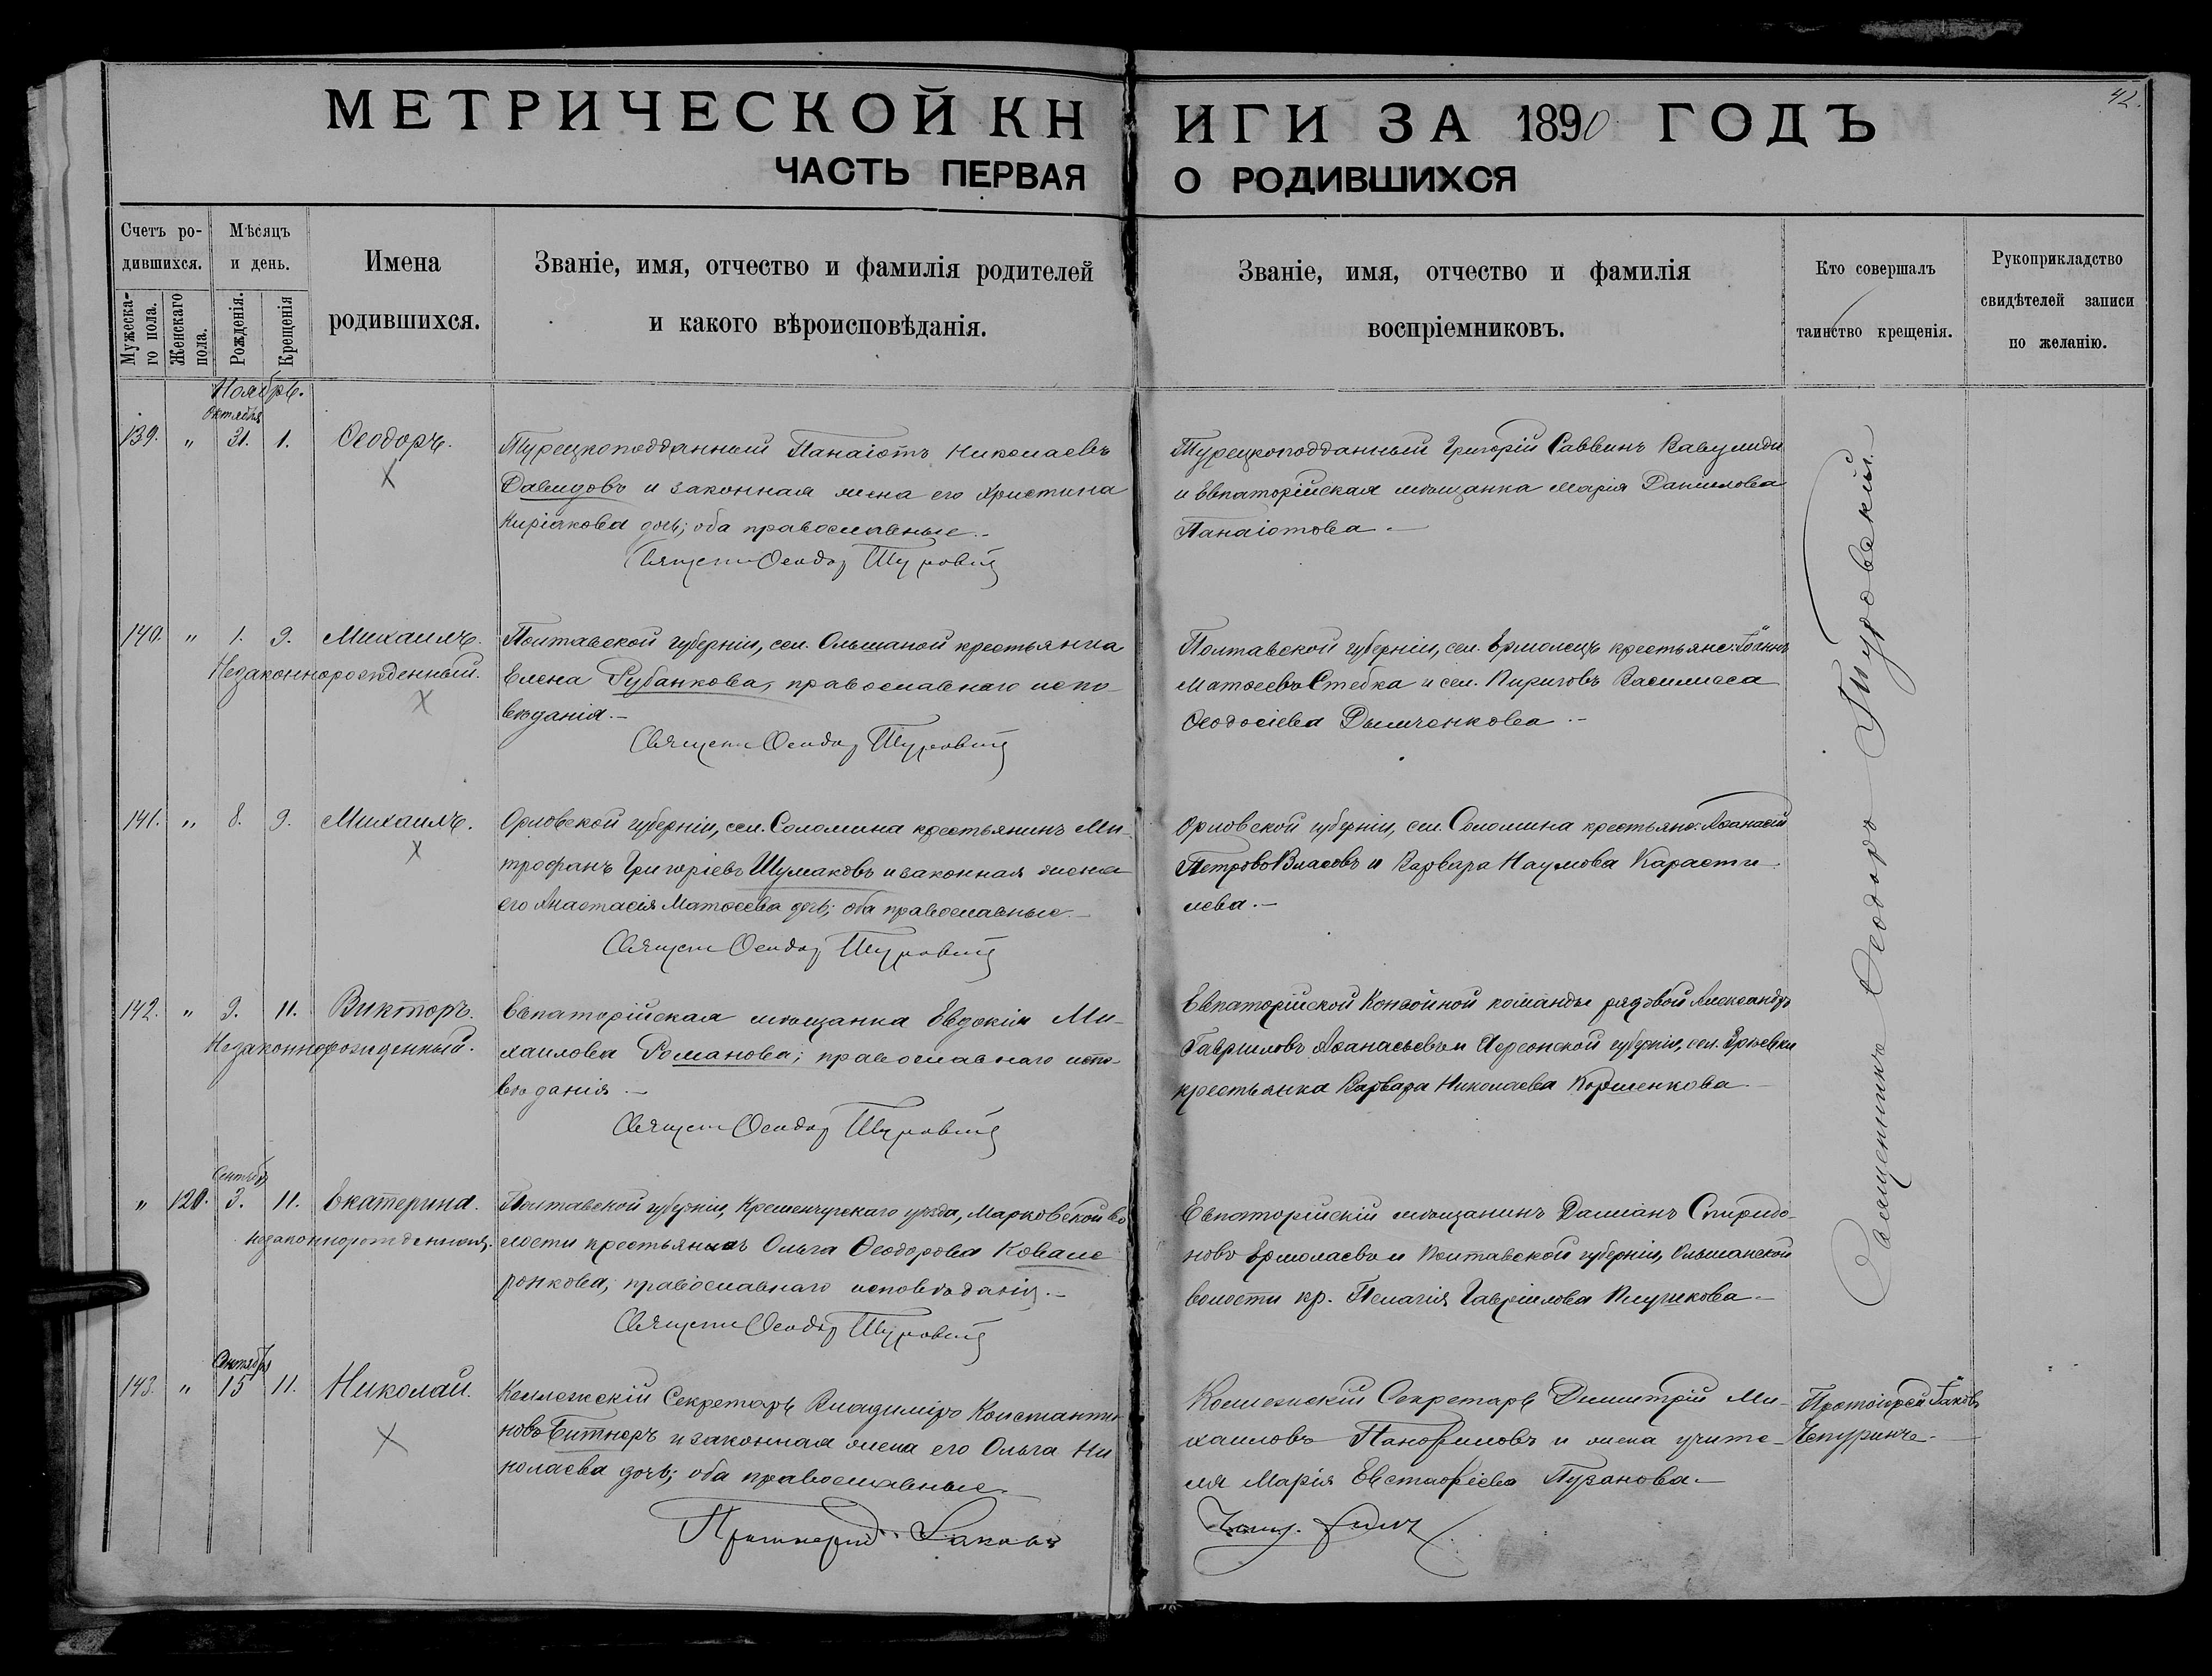 42.
МЕТРИЧЕСКОЙ КНИГИ ЗА 1890 ГОДЪ
ЧАСТЬ ПЕРВАЯ О РОДИВШИХСЯ
Счетъ родившихся.
Мужескаго пола.
Женскаго пола.
Мѣсяцъ и день.
Рожденія.
Крещенія
Имена родившихся.
Званіе, имя, отчество и фамилія родителей
и какого вѣроисповѣданія.
Званіе, имя, отчество и фамилія
воспріемниковъ.
Кто совершалъ
таинство крещенія.
Рукоприкладство
свидѣтелей записи
по желанію.
Ноябрь.
Октября
139. " 31. 1. Ѳеодоръ.
Турецкоподданный Панаіотъ Николаевъ
Давидовъ и законная жена его Христина
Киріакова дочь; оба православные.-
Священ Ѳеодор Туровскій
Турецкоподданный Григорій Саввинъ
и Евпаторійская мѣщанка Марія Данилова
Панаіотова.-
140. " 1. 9. Михаилъ.
Незаконнорожденный.
Полтавской губерніи, сел. Ольшаной крестьянка
Елена Рубанкова, православнаго испо-
вѣданія.-
Священ Ѳеодор Туровскій
Полтавской губерніи, сел. Ермолецъ крестьяне: Іоаннъ
Матѳеевъ Стебка и сел. Пириговъ Василисса
Ѳеодосіева Дымченкова.-
141. " 8. 9. Михаилъ.
Орловской губерніи, сел. Соломина крестьянинъ Ми-
трофанъ Григоріевъ Шумаковъ и законная жена
его Анастасія Матѳеева дочь; оба православные.-
Священ Ѳеодор Туровскій
Орловской губерніи, сел. Соломина крестьяне: Аѳанасій
Петровъ Власовъ и Варвара Наумова Карасти-
лева.-
142. " 9. 11. Викторъ.
Незаконнорожденный.
Евпаторійская мѣщанка Евдокія Ми-
хаилова Романова; православнаго испо-
вѣданія.-
Священ Ѳеодор Туровскій
Евпаторійской Конвойной команды рядовой Александръ
Гавриловъ Аѳанасьевъ и Херсонской губерніи, сел. Юрьевки
крестьянка Варвара Николаева Кормленкова.-
Сентября
" 120. 3. 11. Екатерина.
Незаконнорожденная.
Полтавской губерніи, Кременчугскаго уѣзда, Марковской во-
лости крестьянка Ольга Ѳеодорова Ковале-
ронкова, православнаго исповѣданія.-
Священ Ѳеодор Туровскій
Евпаторійскій мѣщанинъ Даміанъ Спиридо-
новъ Ермолаевъ и Полтавской губерніи, Ольшанской
волости кр. Пелагія Гавріилова Плужкова.-
Священникъ Ѳеодоръ Туровскій.-
143. " 15 11. Николай.
Коллежскій Секретарь Владиміръ Константи-
новъ Битнеръ и законная жена его Ольга Ни-
колаева дочь; оба православные.-
Протоіерей Іаковъ
Коллежскій Секретарь Димитрій Ми-
хаиловъ Панфиловъ и жена учите-
ля Марія Евстафіева Пузанова.-
Протоіерей Іаковъ
Чепуринъ.-